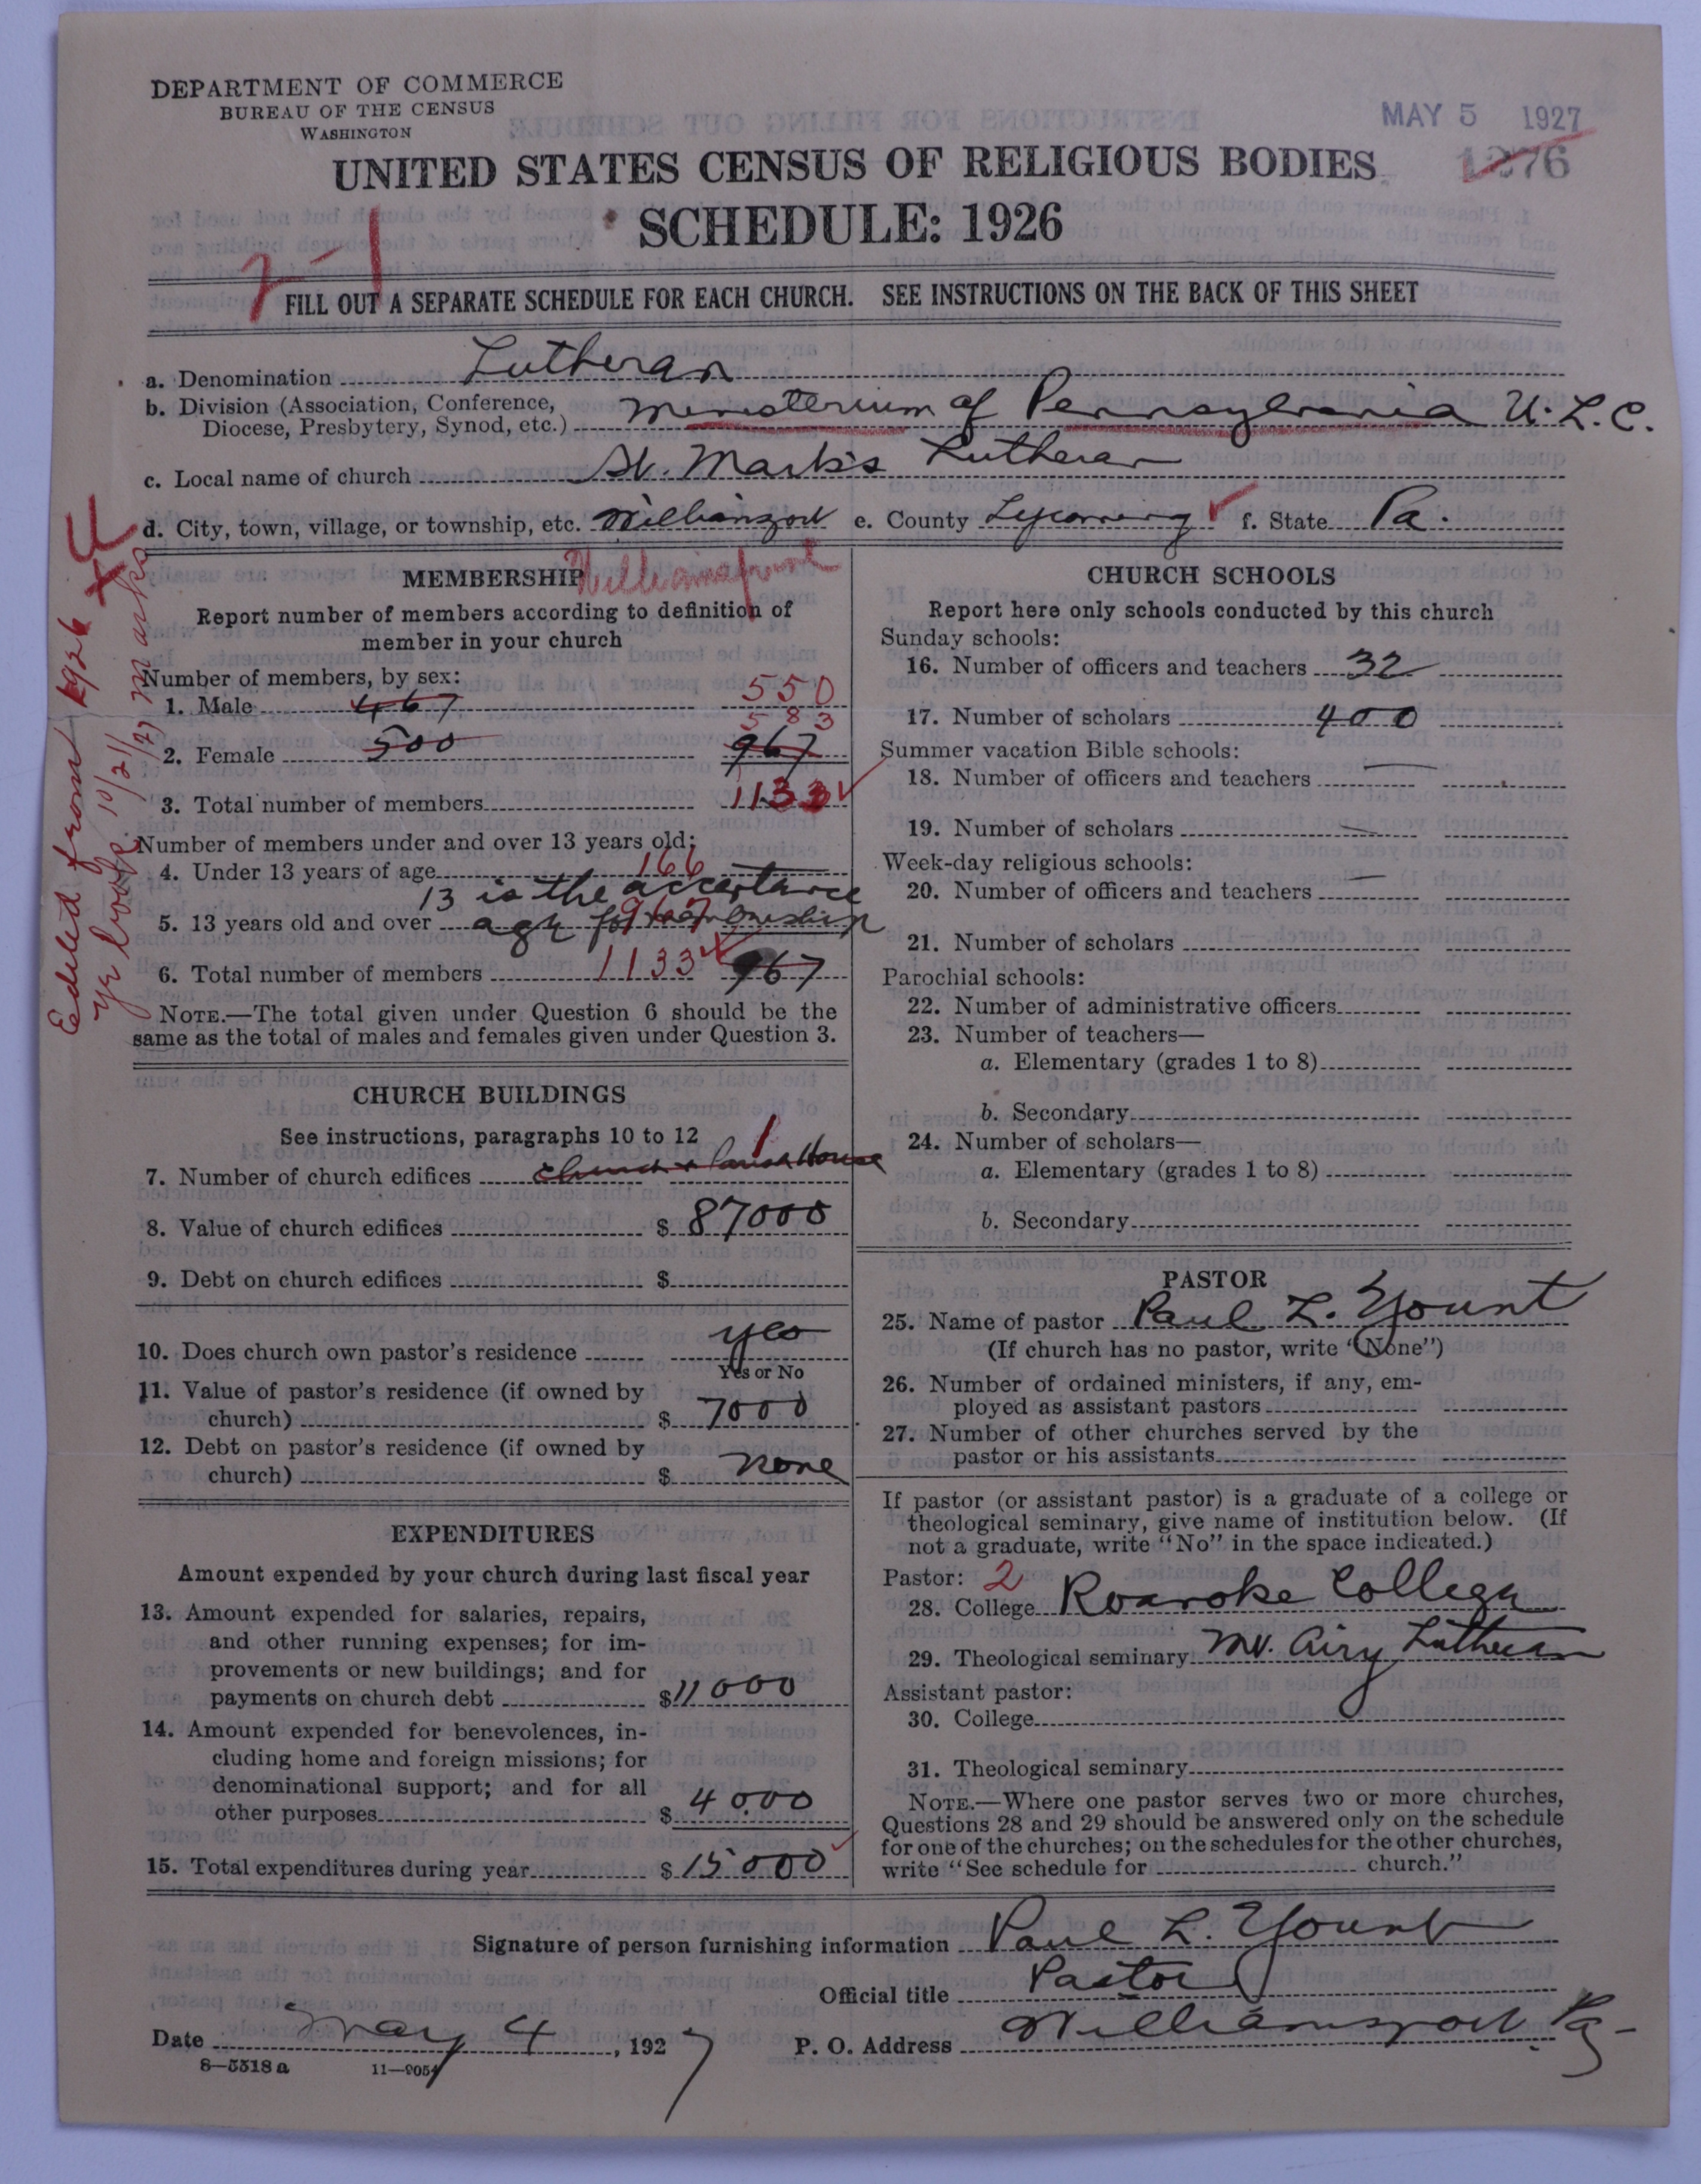 DEPARTMENT OF COMMERCE
BUREAU OF THE CENSUS
WASHINGTON
MAY 5 1927
1276
UNITED STATES CENSUS OF RELIGIOUS BODIES
SCHEDULE: 1926
7-1
FILL OUT A SEPARATE SCHEDULE FOR EACH CHURCH. SEE INSTRUCTIONS ON THE BACK OF THIS SHEET
a. Denomination Lutheran
b. Division (Association, Conference, Diocese, Presbytery, Synod, etc.) Ministerium of Pennsylvania U.L.C.
c. Local name of church St. Mark's Lutheran
d. City, town, village, or township, etc. Williamsport e. County Lycoming f. State Pa.
Edited from 1926
yr book 10/21/27 Marks
MEMBERSHIP Williamsport
Report number of members according to definition of
member in your church
Number of members, by sex:
1. Male 467 550
2. Female 500 583 967
3. Total number of members 1133
Number of members under and over 13 years old:
4. Under 13 years of age 166
13 is the acceptance
5. 13 years old and over age for membership 967
6. Total number of members 1133 967
NOTE.—The total given under Question 6 should be the
same as the total of males and females given under Question 3.
CHURCH BUILDINGS
See instructions, paragraphs 10 to 12
7. Number of church edifices Church & Parish House 1
8. Value of church edifices $ 87000
9. Debt on church edifices $
10. Does church own pastor's residence yes
Yes or No
11. Value of pastor's residence (if owned by
church) $ 7000
12. Debt on pastor's residence (if owned by
church) $ none
EXPENDITURES
Amount expended by your church during last fiscal year
13. Amount expended for salaries, repairs,
and other running expenses; for im-
provements or new buildings; and for
payments on church debt $ 11000
14. Amount expended for benevolences, in-
cluding home and foreign missions; for
denominational support; and for all
other purposes $ 4000
15. Total expenditures during year $ 15000
CHURCH SCHOOLS
Report here only schools conducted by this church
Sunday schools:
16. Number of officers and teachers 32
17. Number of scholars 400
Summer vacation Bible schools:
18. Number of officers and teachers
19. Number of scholars
Week-day religious schools:
20. Number of officers and teachers
21. Number of scholars
Parochial schools:
22. Number of administrative officers
23. Number of teachers—
a. Elementary (grades 1 to 8)
b. Secondary
24. Number of scholars—
a. Elementary (grades 1 to 8)
b. Secondary
PASTOR
25. Name of pastor Paul L. Yount
(If church has no pastor, write "None")
26. Number of ordained ministers, if any, em-
ployed as assistant pastors
27. Number of other churches served by the
pastor or his assistants
If pastor (or assistant pastor) is a graduate of a college or
theological seminary, give name of institution below. (If
not a graduate, write "No" in the space indicated.)
Pastor: 2
28. College Roanoke College
29. Theological seminary Mt. Airy Lutheran
Assistant pastor:
30. College
31. Theological seminary
NOTE.—Where one pastor serves two or more churches,
Questions 28 and 29 should be answered only on the schedule
for one of the churches; on the schedules for the other churches,
write "See schedule for church."
Signature of person furnishing information Paul L. Yount
Official title Pastor
Date May 4, 1927 P. O. Address Williamsport Pa
8—5518a 11—9054